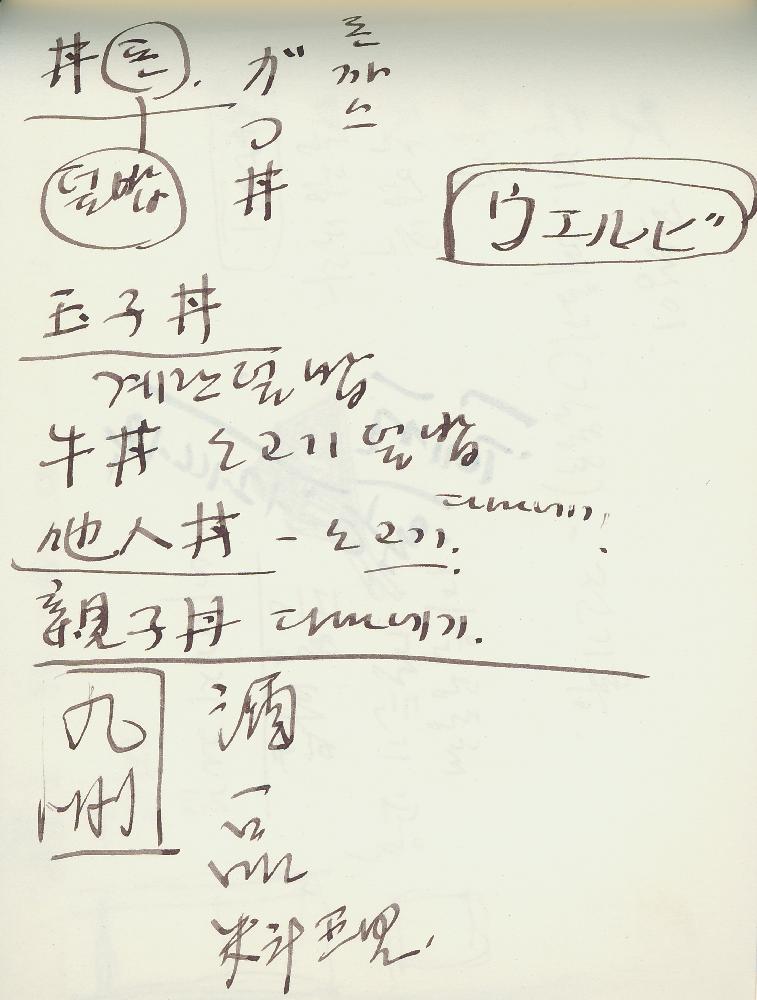 丼 돈.
덮밥
ガつ丼
돈까스
ウエルビ"
玉子丼
계란덮밥
牛丼 소고기덮밥
他人丼 - 소고기.
親子丼
九州
酒
一品
料理.